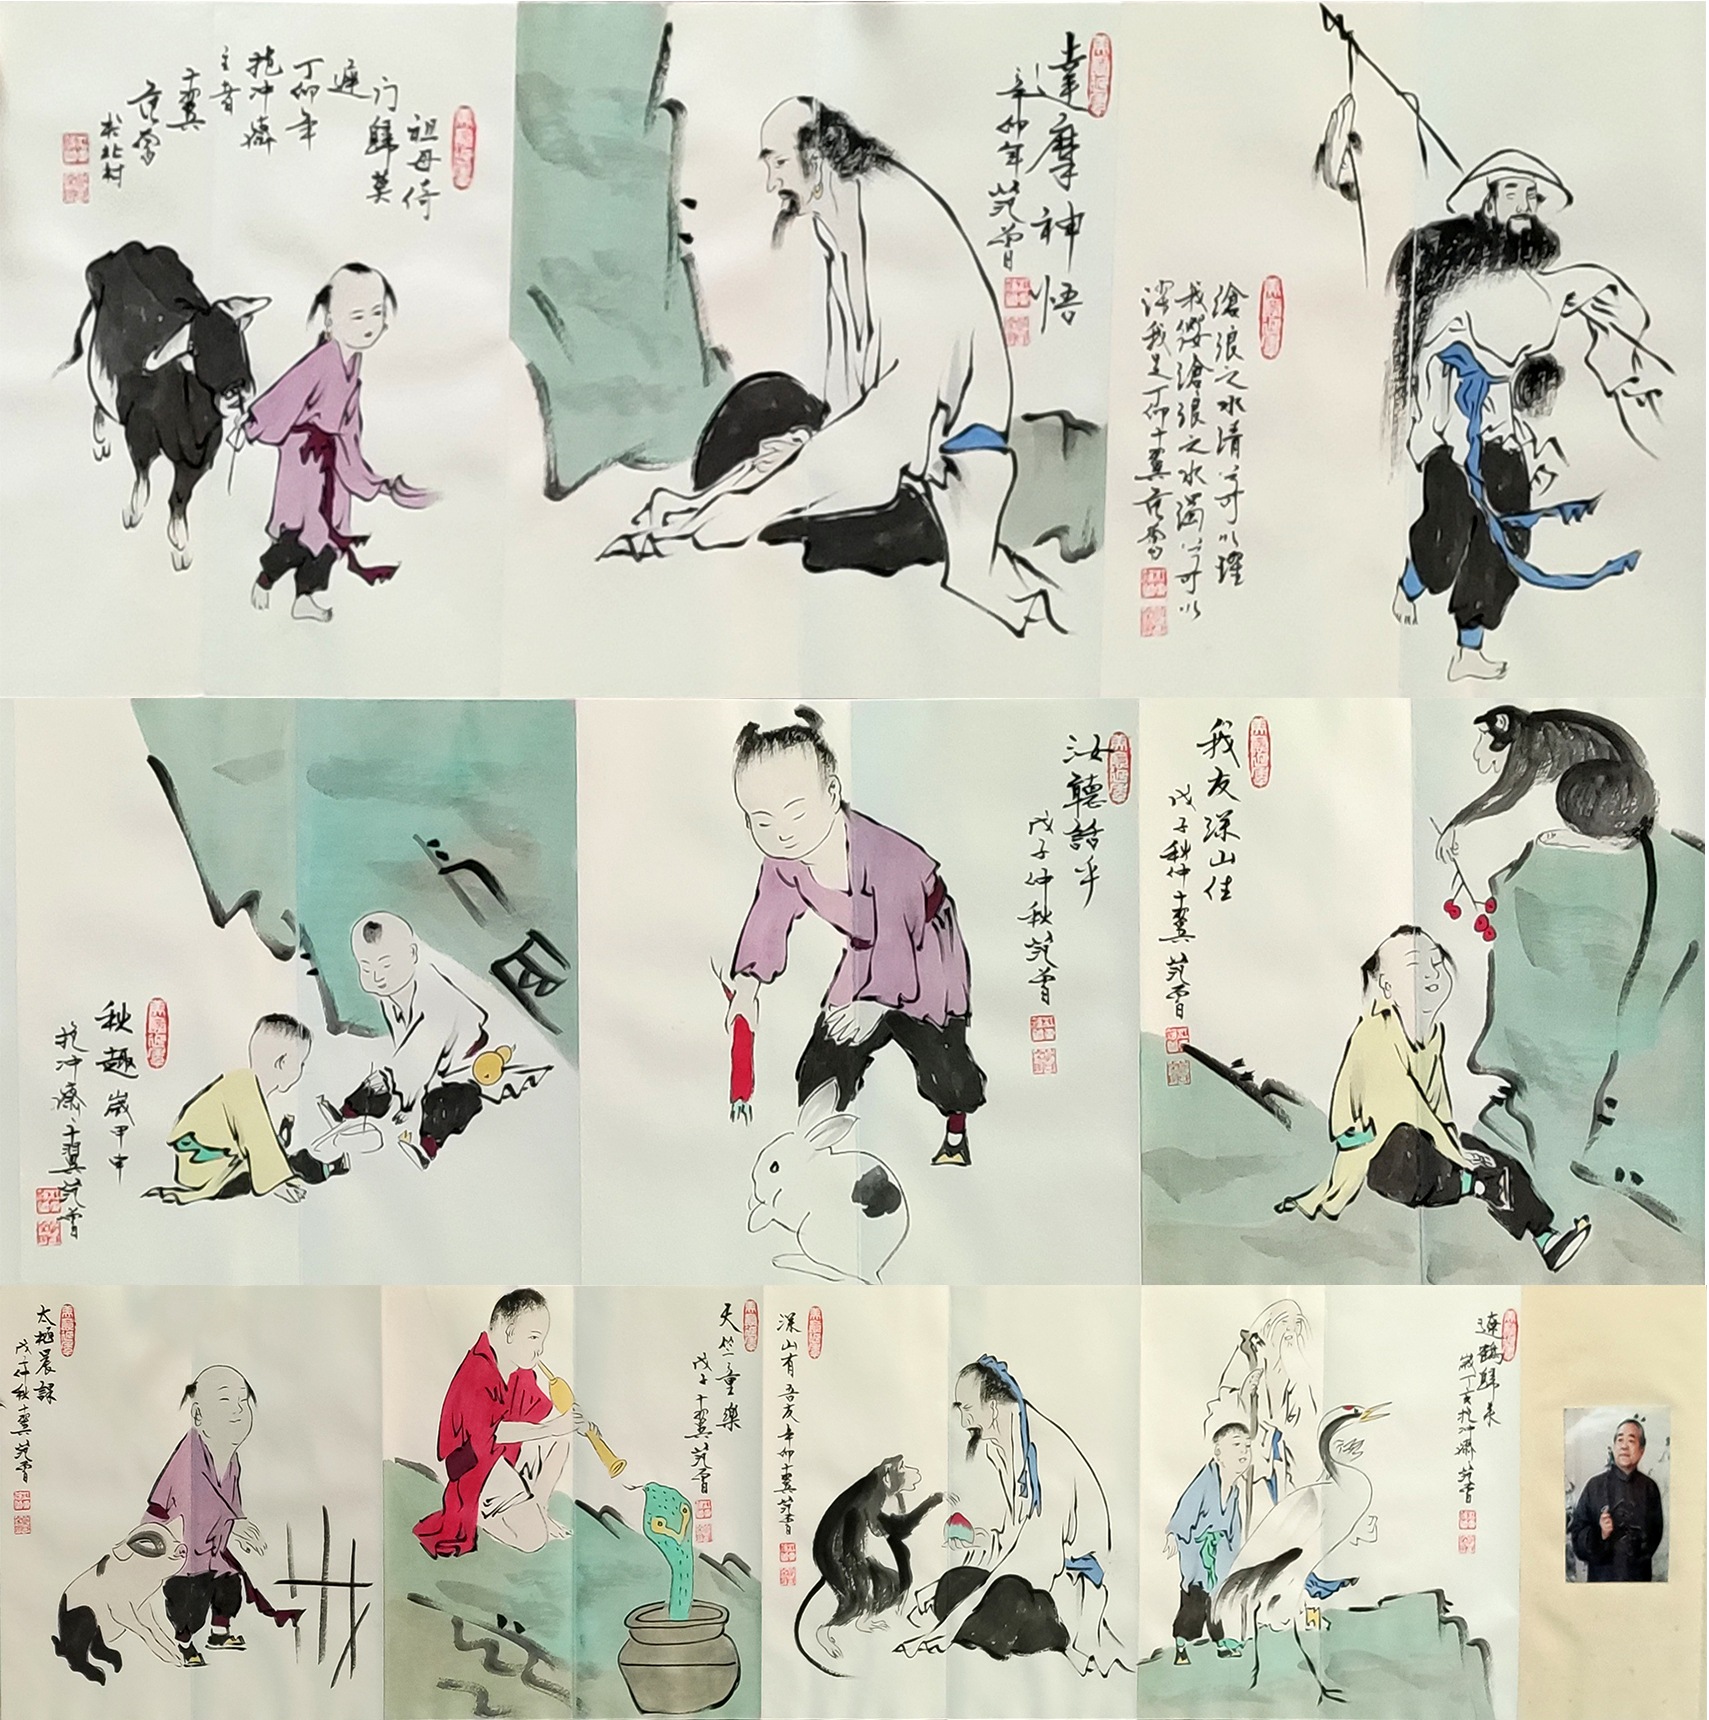 祖母倚
门歸莫
遲
丁卯年
抱冲齋
主者
十翼
范曾
於北村
達摩神悟
辛卯年范曾
滄浪之水清兮可以濯
我纓滄浪之水濁兮可以
濯我足丁卯十翼范曾
秋趣歲甲申
抱冲齋十翼范曾
汝聽話乎
戊子仲秋范曾
我友深山住
戊子秋仲十翼范曾
太極晨課
戊子仲秋十翼范曾
天竺童樂
戊子十翼范曾
深山有吾友辛卯十翼范曾
連鶴歸来
歲丁亥抱冲齋范曾